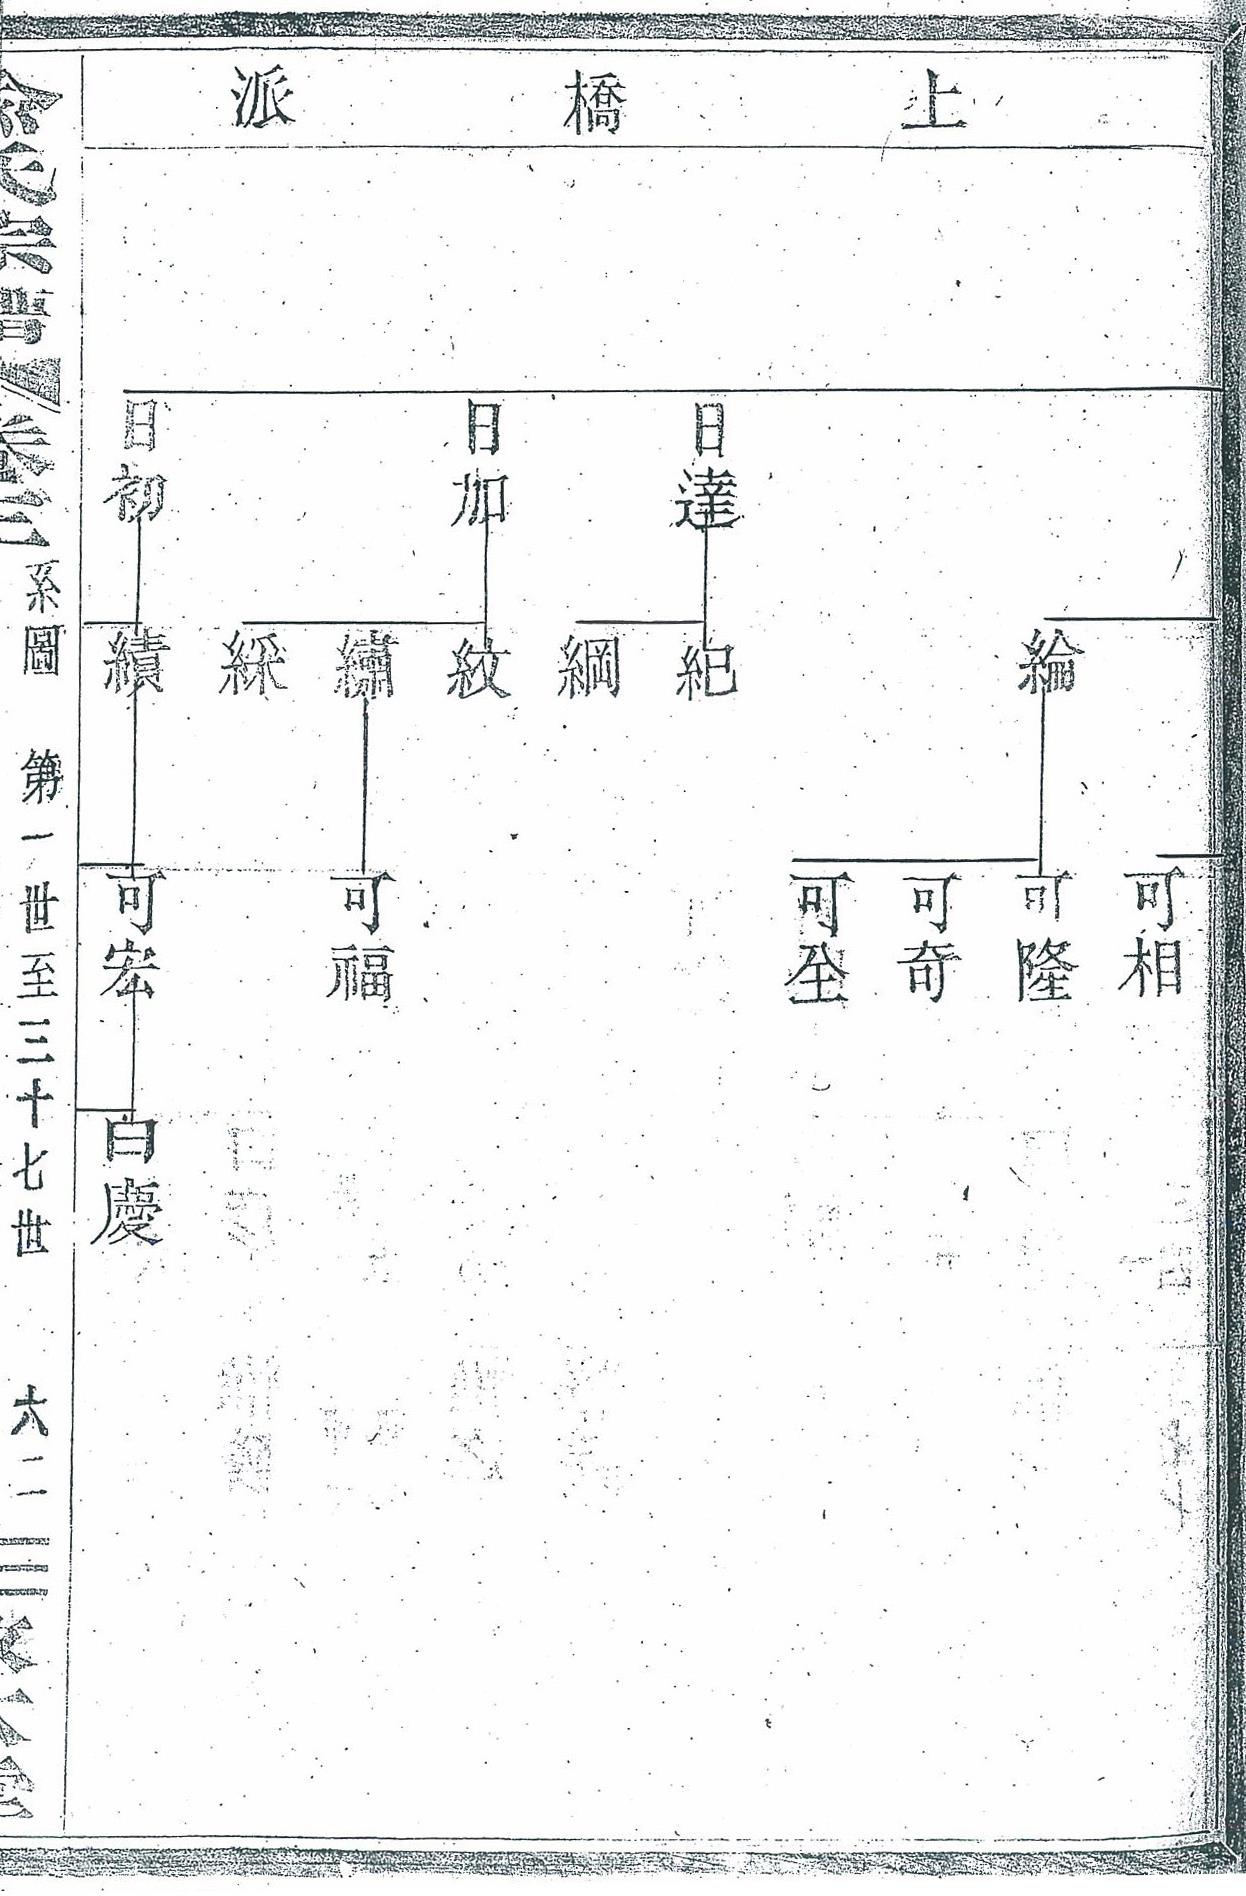 上橋派
日達
日加
日初
綸
紀
綱
紋
繡
綵
績
可相
可隆
可奇
可坐
可福
可宏
白慶
氏宗譜
卷三
系圖
第一世至三十七世
六二